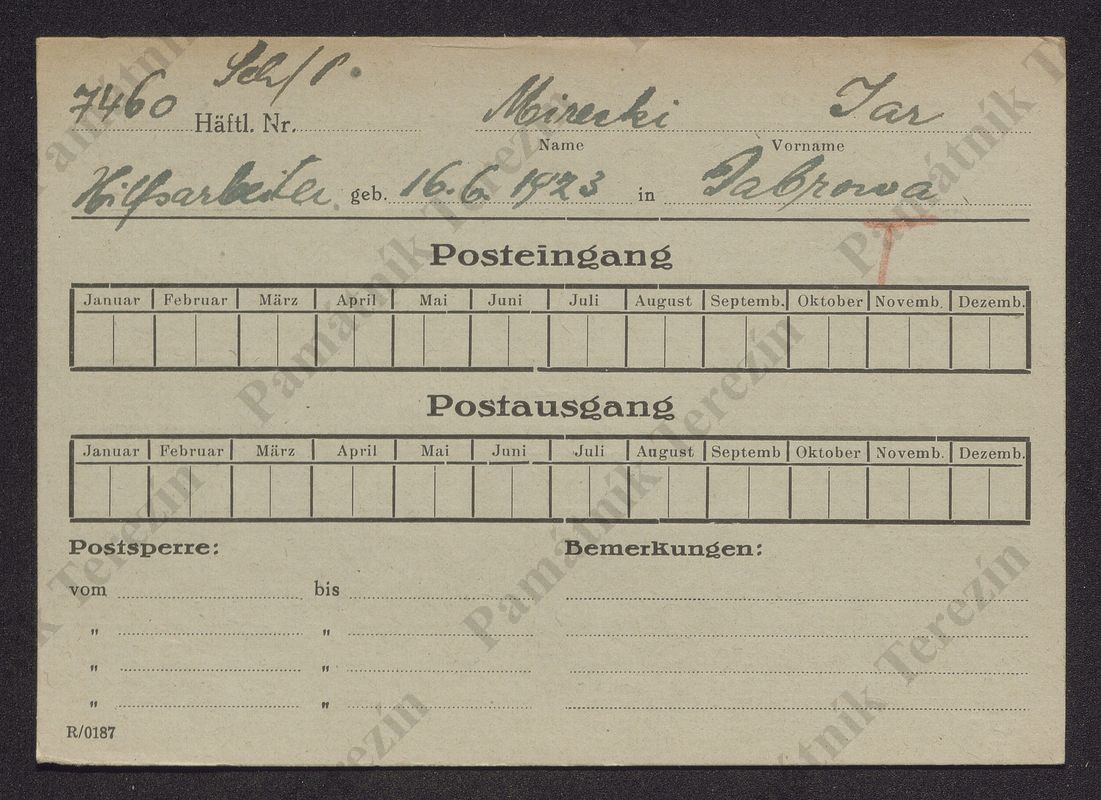 Sch/P.
7460 Häftl. Nr. Mirecki Jar
Name Vorname
Hilfsarbeiter. geb. 16.6.1923 in Dabrowa
T
Posteingang
Januar Februar März April Mai Juni Juli August Septemb. Oktober Novemb. Dezemb.
Postausgang
Januar Februar März April Mai Juni Juli August Septemb Oktober Novemb. Dezemb.
Postsperre: Bemerkungen:
vom bis
" "
" "
" "
R/0187
Památník Terezín